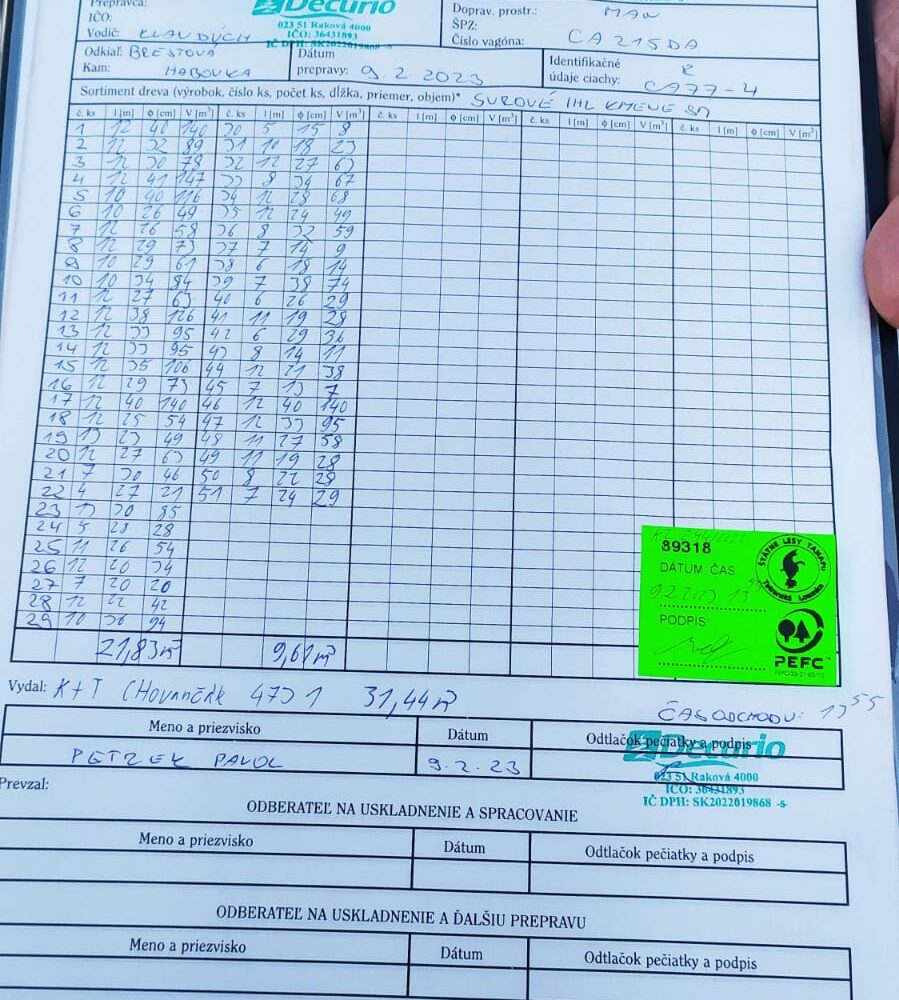 Prepravca:
IČO:
Vodič: KLAUDÚCH
Decurio
023 51 Raková 4000
IČO: 36431893
IČ DPH: SK2022019868 -8-
Doprav. prostr.: MAN
ŠPZ:
Číslo vagóna: CA 215DA
Odkiaľ: BRESTOVÁ
Kam: HABOVKA
Dátum
prepravy: 9.2.2023
Identifikačné
údaje ciachy: CA77-4
Sortiment dreva (výrobok, číslo ks, počet ks, dĺžka, priemer, objem)* SUROVÉ IHL KMENE
č. ks l [m] ϕ [cm] V [m³] č. ks l [m] ϕ [cm] V [m³] č. ks l [m] ϕ [cm] V [m³] č. ks l [m] ϕ [cm] V [m³] č. ks l [m] ϕ [cm] V [m³]
1 12 40 140 30 5 15 8
2 12 32 89 31 10 18 23
3 12 30 78 32 12 27 63
4 12 41 147 33 8 34 67
5 10 40 116 34 12 28 68
6 10 26 49 35 12 24 49
7 12 26 58 36 8 32 59
8 12 29 73 37 7 14 9
9 10 29 61 38 6 18 14
10 10 34 84 39 7 38 74
11 12 27 63 40 6 26 29
12 12 38 126 41 11 19 28
13 12 33 95 42 6 29 36
14 12 33 95 43 8 14 11
15 12 35 106 44 12 21 38
16 12 29 73 45 7 13 7
17 12 40 140 46 12 40 140
18 12 25 54 47 12 33 95
19 13 23 49 48 11 27 58
20 12 27 63 49 11 19 28
21 7 30 46 50 8 22 28
22 4 27 21 51 7 24 29
23 13 30 85
24 5 28 28
25 11 26 54
26 12 20 34
27 7 20 20
28 12 22 42
29 10 36 94
21,83m³ 9,61m³
89318
DÁTUM. ČAS
PODPIS
ŠTÁTNE LESY TANAPU
Tatranská Lomnica
PEFC
Vydal: K+T CHOVANČÁK 4731 31,44m³
ČAS ODCHODU: 13 55
Meno a priezvisko Dátum Odtlačok pečiatky a podpis
PETREK PAVOL 9.2.23
Decurio
023 51 Raková 4000
IČO: 36431893
IČ DPH: SK2022019868 -8-
Prevzal:
ODBERATEĽ NA USKLADNENIE A SPRACOVANIE
Meno a priezvisko Dátum Odtlačok pečiatky a podpis
ODBERATEĽ NA USKLADNENIE A ĎALŠIU PREPRAVU
Meno a priezvisko Dátum Odtlačok pečiatky a podpis